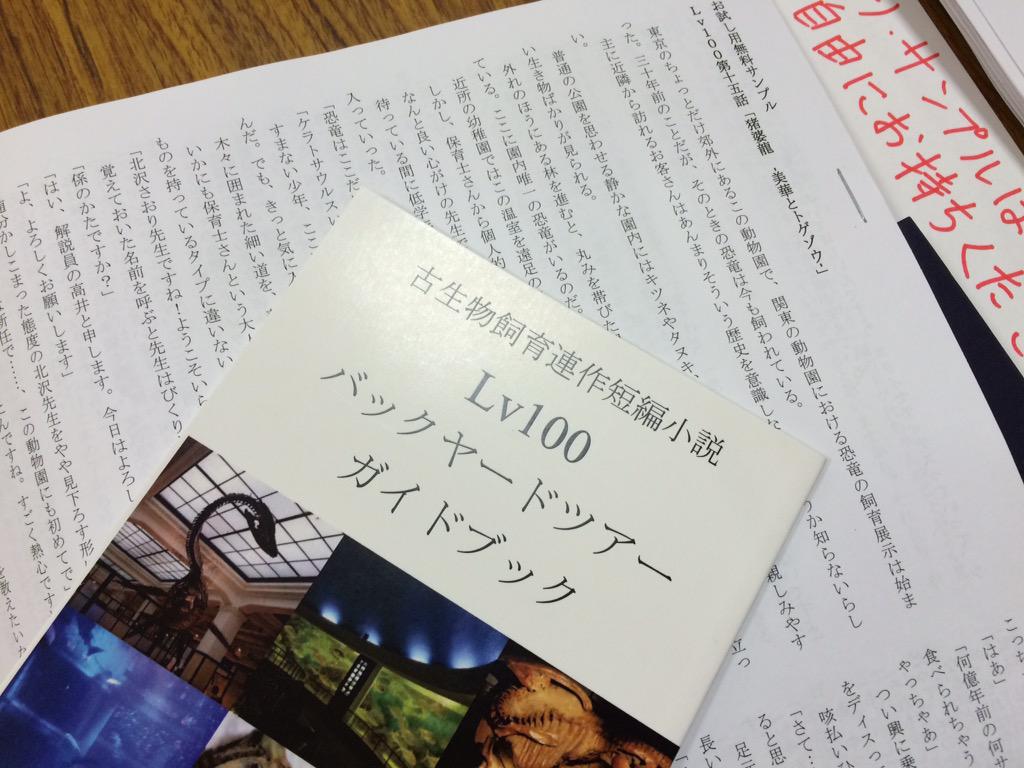 り・サンプルは
自由にお持ちくださ
お試し用無料サンプル
Lv100第十五話「猪婆龍　美華とトゲゾウ」
東京のちょっとだけ郊外にあるこの動物園で、関東の動物園における恐竜の飼育展示は始ま
った。三十年前のことだが、そのときの恐竜は今も飼われている。
主に近隣から訪れるお客さんはあんまりそういう歴史を意識し
うか知らないらし
い。
普通の公園を思わせる静かな園内にはキツネやタヌキ、
親しみやす
い生き物ばかりが見られる。
外れのほうにある林を進むと、丸みを帯びた
立っ
ている。ここに園内唯一の恐竜がいるのだ。
近所の幼稚園ではこの温室を遠足の
しかし、保育士さんから個人的
なんと良い心がけの先生で
待っている間に低学
入っていった。
「恐竜はここだ
「ケラトサウルスい
すまない少年、ここ
んだ。でも、きっと気に
木々に囲まれた細い道を、
いかにも保育士さんという大人
ものを持っているタイプに違いない
「北沢さおり先生ですね！ようこそい
覚えておいた名前を呼ぶと先生はびくり
「係のかたですか？」
「はい、解説員の高井と申します。今日はよろし
「よ、よろしくお願いします」
随分かしこまった態度の北沢先生をやや見下ろす形
新任で……、この動物園にも初めてで」
んですね。すごく熱心です
を教えたいか
古生物飼育連作短編小説
Lv100
バックヤードツアー
ガイドブック
こっち
「はあ」
「何億年前の何サ
食べられちゃう
やっちゃあ」
つい興に乗
をディスっ
咳払い
「さて…
足示
ると思
長い